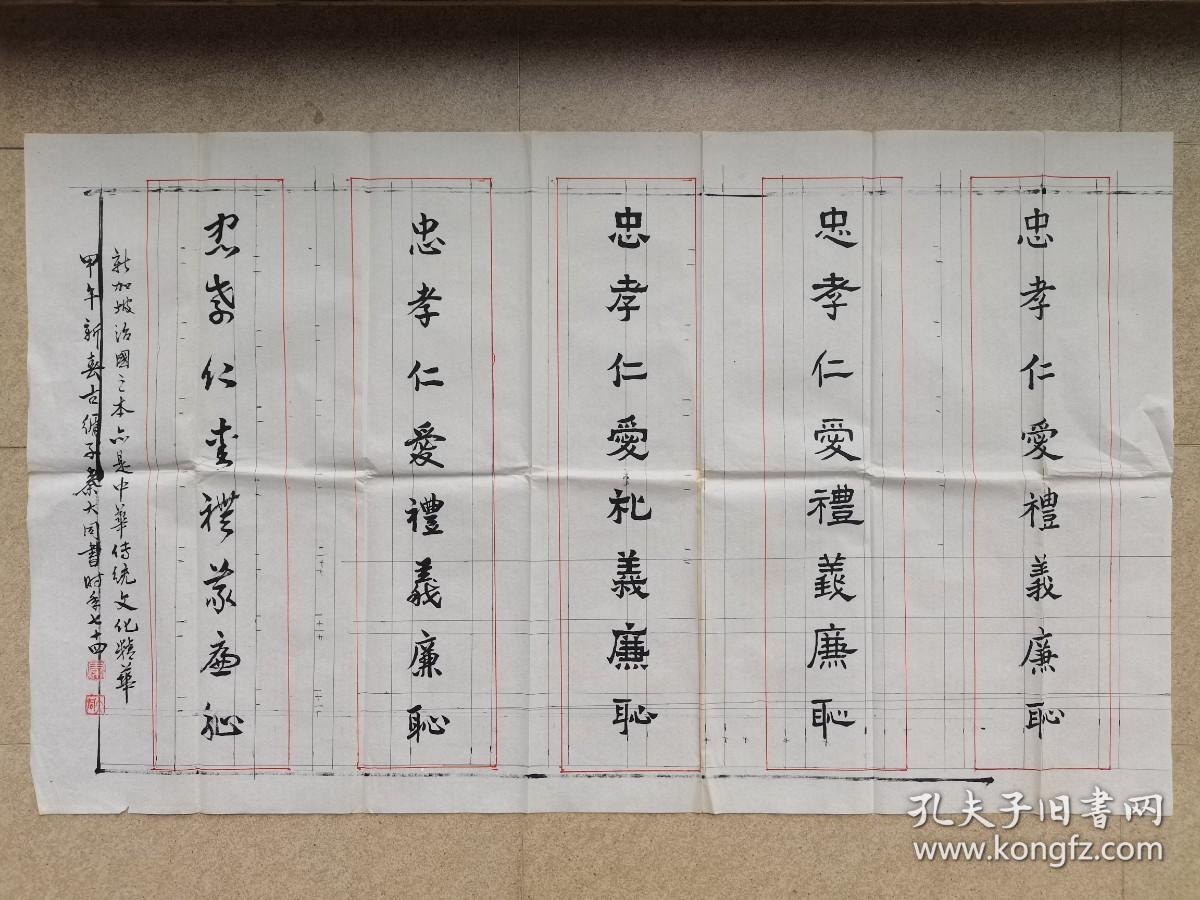 忠孝仁愛禮義廉恥
忠孝仁愛禮義廉恥
忠孝仁愛礼義廉恥
忠孝仁愛禮義廉恥
忠孝仁愛禮義廉恥
新加坡治國之本亦是中華传统文化精華
甲午新春古循子秦大同書时年七十四
孔夫子旧書网
www.kongfz.com